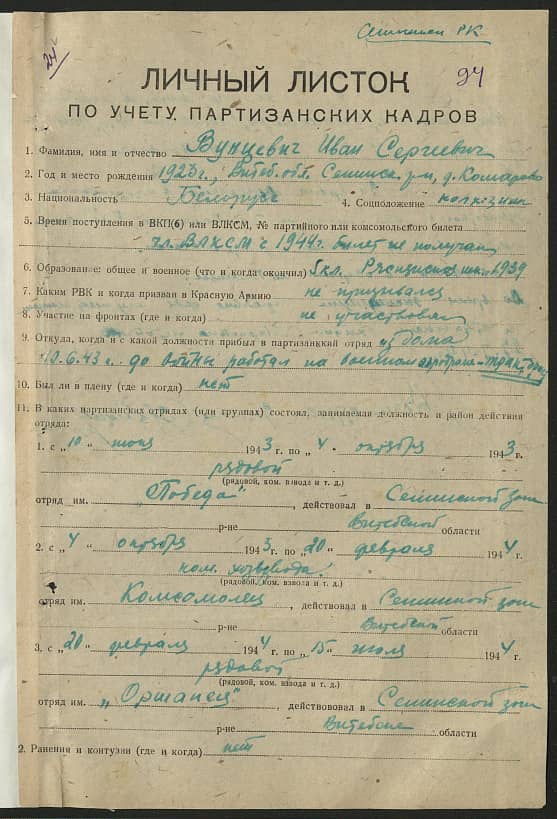 Сенненск РК
24
94
ЛИЧНЫЙ ЛИСТОК
ПО УЧЕТУ ПАРТИЗАНСКИХ КАДРОВ
1. Фамилия, имя и отчество Вунцевич Иван Сергеевич
2. Год и место рождения 1923 г., Витеб. обл. Сеннинск. р-н, д.
3. Национальность Белорус 4. Соцположение колхозник
5. Время поступления в ВКП(б) или ВЛКСМ, № партийного или комсомольского билета
чл. ВЛКСМ с 1944 г. билет не получал
6. Образование: общее и военное (что и когда окончил) 5 кл. шк. 1939
7. Каким РВК и когда призван в Красную Армию не призывался
8. Участие на фронтах (где и когда) не участвовал
9. Откуда, когда и с какой должности прибыл в партизанккий отряд из дома
10.6.43 г. до войны работал на военном аэродроме
10. Был ли в плену (где и когда) нет
11. В каких партизанских отрядах (или группах) состоял, занимаемая должность и район действия
отряда:
1. с „10“ июня 1943 г. по „4“ октября 1943 г.
рядовой
(рядовой, ком. взвода и т. д.)
отряд им. „Победа“, действовал в Сеннинской зоне
р-не Витебской области
2. с „4“ октября 1943 г. по „20“ февраля 1944 г.
ком. хозвзвода
(рядовой, ком. взвода и т. д.)
отряд им. Комсомолец, действовал в Сеннинской зоне
р-не Витебской области
3. с „20“ февраля 1944 г. по „15“ июля 1944 г.
рядовой
(рядовой, ком. взвода и т. д.)
отряд им. „Оршанец“, действововал в Сеннинской зоне
р-не Витебской области
2. Ранения и контузии (где и когда) нет